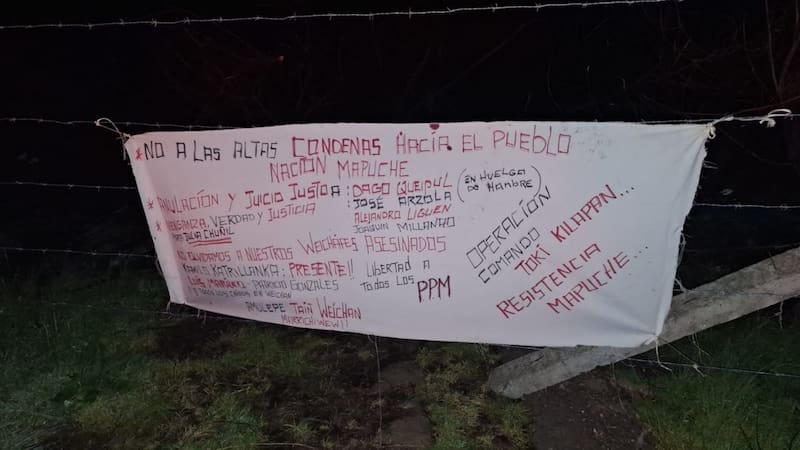 *NO A LAS ALTAS CONDENAS HACÍA EL PUEBLO
NACIÓN MAPUCHE
* ANULACIÓN Y JUICIO JUSTO A: DAGO QUEIPUL (EN HUELGA DE HAMBRE)
JOSÉ ARZOLA
* VENGANZA, VERDAD Y JUSTICIA
PARA JULIA CHUÑIL
ALEJANDRO LIGUEN
JOAQUIN MILLANAO
NO OLVIDAMOS A NUESTROS WEICHAFES ASESINADOS
CAMILO KATRILLANKA: PRESENTE!!
LUIS MARILEO - PATRICIO GONZALES
Y TODOS LOS CAIDOS EN WEICHAN
LIBERTAD A
TODOS LOS PPM
AMULEPE TAIÑ WEICHAN
MARRICHIWEW!!
OPERACIÓN
COMANDO
TOKI KILAPAN...
RESISTENCIA
MAPUCHE...